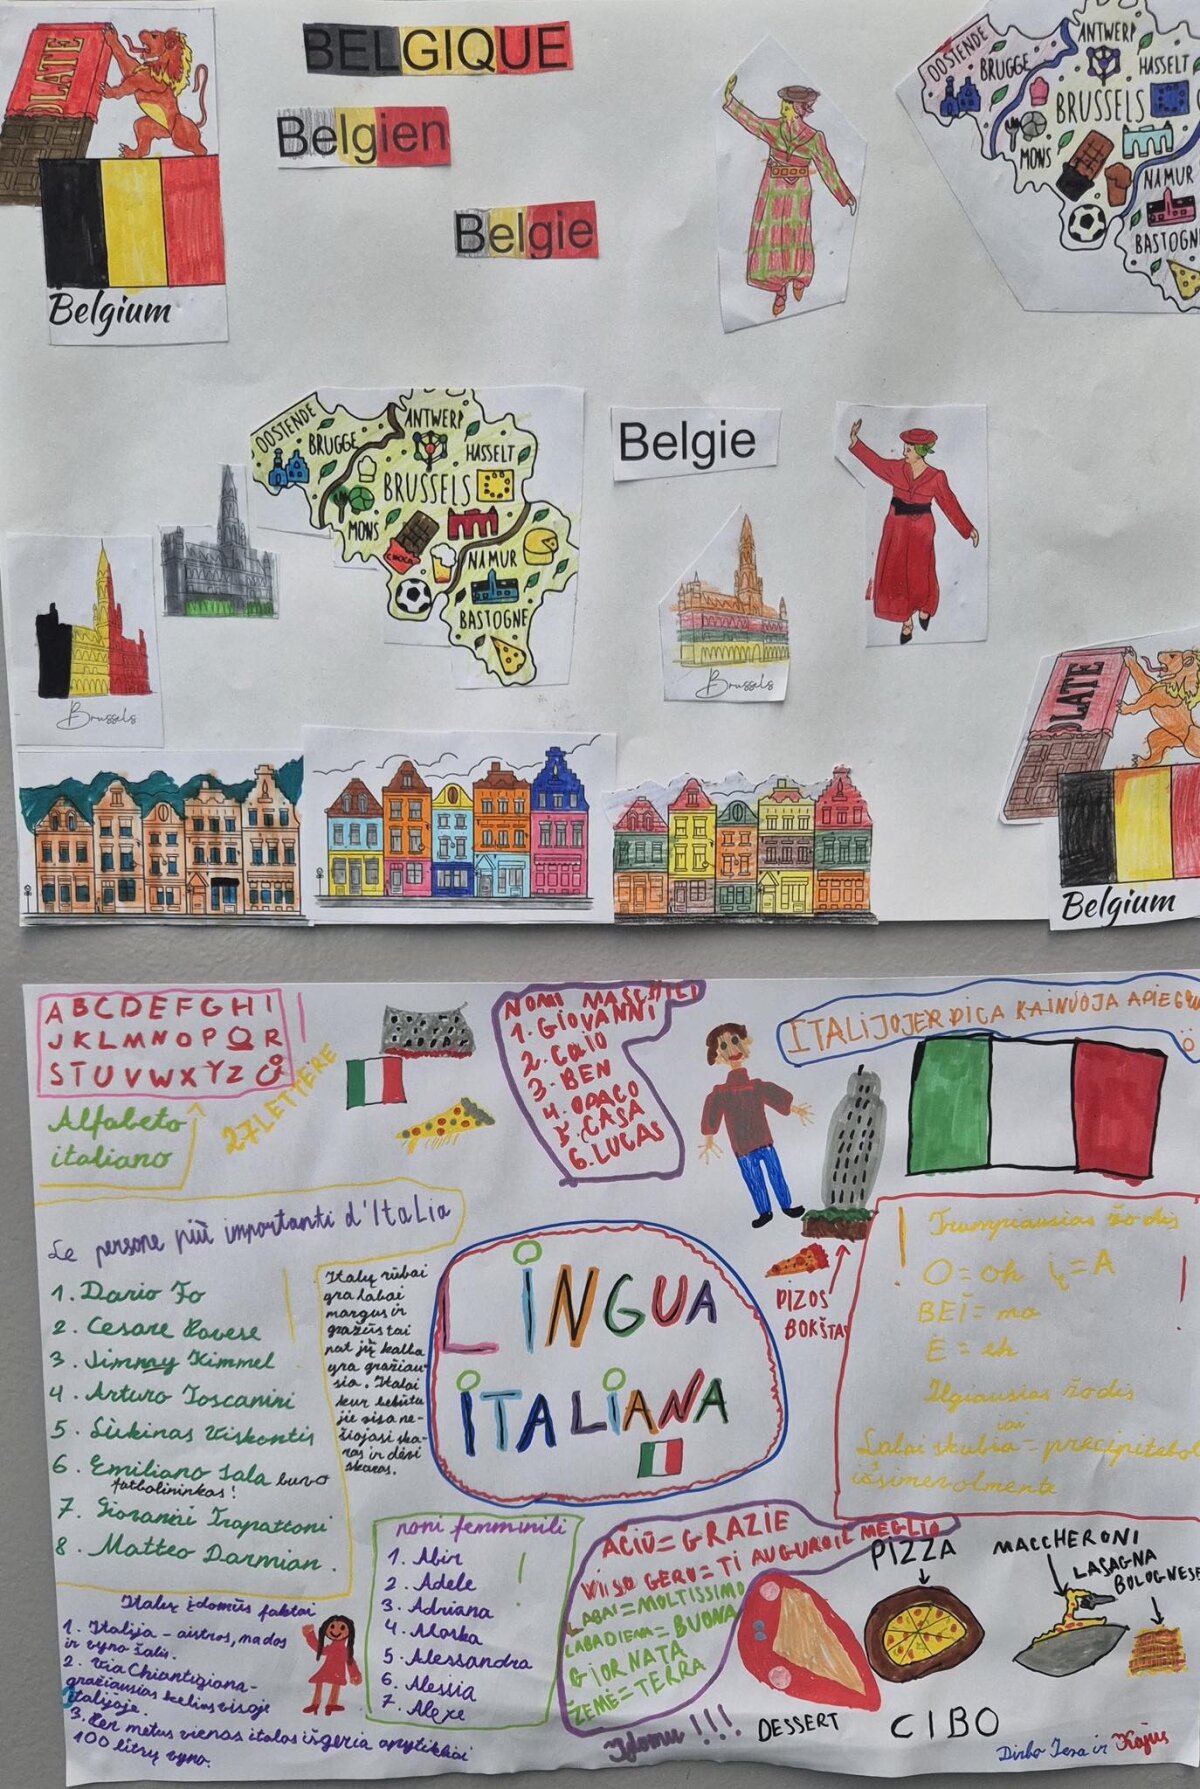 BELGIQUE
Belgien
Belgie
LATE
Belgium
OOSTENDE
ANTWERP
BRUGGE
HASSELT
BRUSSELS
MONS
NAMUR
BASTOGN
OOSTENDE
ANTWERP
BRUGGE
HASSELT
BRUSSELS
MONS
CHOCO
NAMUR
BASTOGNE
Belgie
Brussels
Brussels
LATE
Belgium
ABCDEFGHI
JKLMNOPQR
STUVWXYZ
Alfabeto
italiano
27 LETTERE
NOMI MASCHILI
1. GIOVANNI
2. CAIO
3. BEN
4. OPACO
5. CASA
6. LUCAS
ITALIJOJE PICA KAINUOJA APIE
PIZOS
BOKŠTAS
Le persone più importanti d'Italia
1. Dario Fo
2. Cesare Pavese
3. Jimmy Kimmel
4. Arturo Toscanini
5. Lukinas Viskontis
6. Emiliano Sala buvo
futbolininkas!
7. Giovanni Trapattoni
8. Matteo Darmian.
Italų rūbai
yra labai
margus ir
gražūs tai
pat jų kalba
yra gražiau-
sia. Italai
kur bebūtų
jie visa ne-
šiojasi ska-
ras ir dėvi
skaras.
LINGUA
ITALIANA
Trumpiausias žodis
O = oh į = A
BEI = ma
E = eh
Ilgiausias žodis
Labai skubia - precipitabol
issimevolmente
nomi femminili
1. Abir
2. Adele
3. Adriana
4. Alaska
5. Alessandra
6. Alessia
7. Alexe
AČIŪ = GRAZIE
VISO GERO = TI AUGURO IL MEGLIO
LABAI = MOLTISSIMO
LABA DIENA = BUONA
GIORNATA
ŽEMĖ = TERRA
Įdomu !!!
Italų įdomūs faktai
1. Italija - aistros, mados
ir vyno šalis.
2. Via Chiantigiana -
gražiausias kelias visoje
Italijoje.
3. Per metus vienas italas išgeria apytikliai
100 litrų vyno.
PIZZA
MACCHERONI
LASAGNA
BOLOGNESE
DESSERT
CIBO
Dirbo Ieva ir Kajus